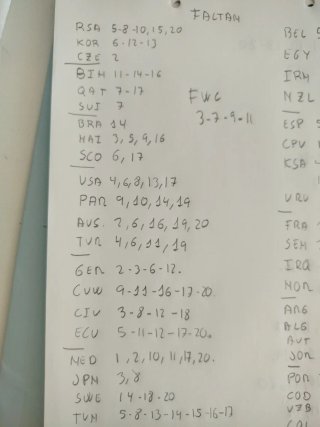 FALTAN
RSA 5-8-10,15,20
KOR 6-12-13
CZE 2
BIH 11-14-16
QAT 7-17
SUI 7
BRA 14
HAI 3,5,9,16
SCO 6,17
USA 4,6,8,13,17
PAR 9,10,14,19
AUS. 2,6,16,19,20
TUR 4,6,11,19
GER 2-3-6-12.
CUW 9-11-16-17-20
CIV 3-8-12-18
ECU 5-11-12-17-20.
NED 1,2,10,11,17,20.
JPN 3,8
SWE 14-18-20
TUN 5-8-13-14-15-16-17
FWC
3-7-9-11
BEL 5
EGY
IRN
NZL
ESP 5
CPV
KSA
URU
FRA
SEN
IRQ
NOR
ARG
ALG
AUT
JOR
POR
COD
UZB